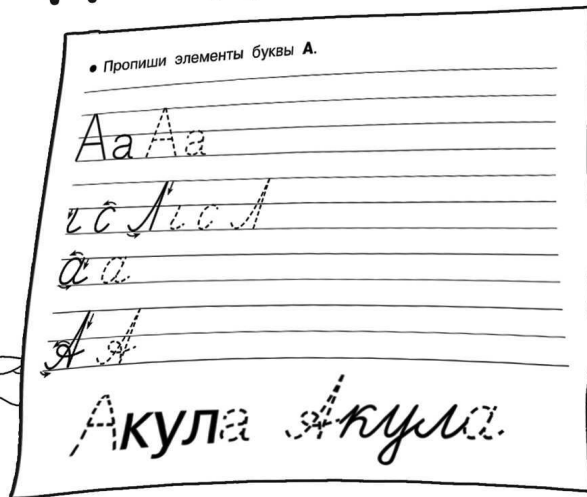 • Пропиши элементы буквы А.
Аа Аа
ı с Л ı с Л
а а
А А
Акула Акула